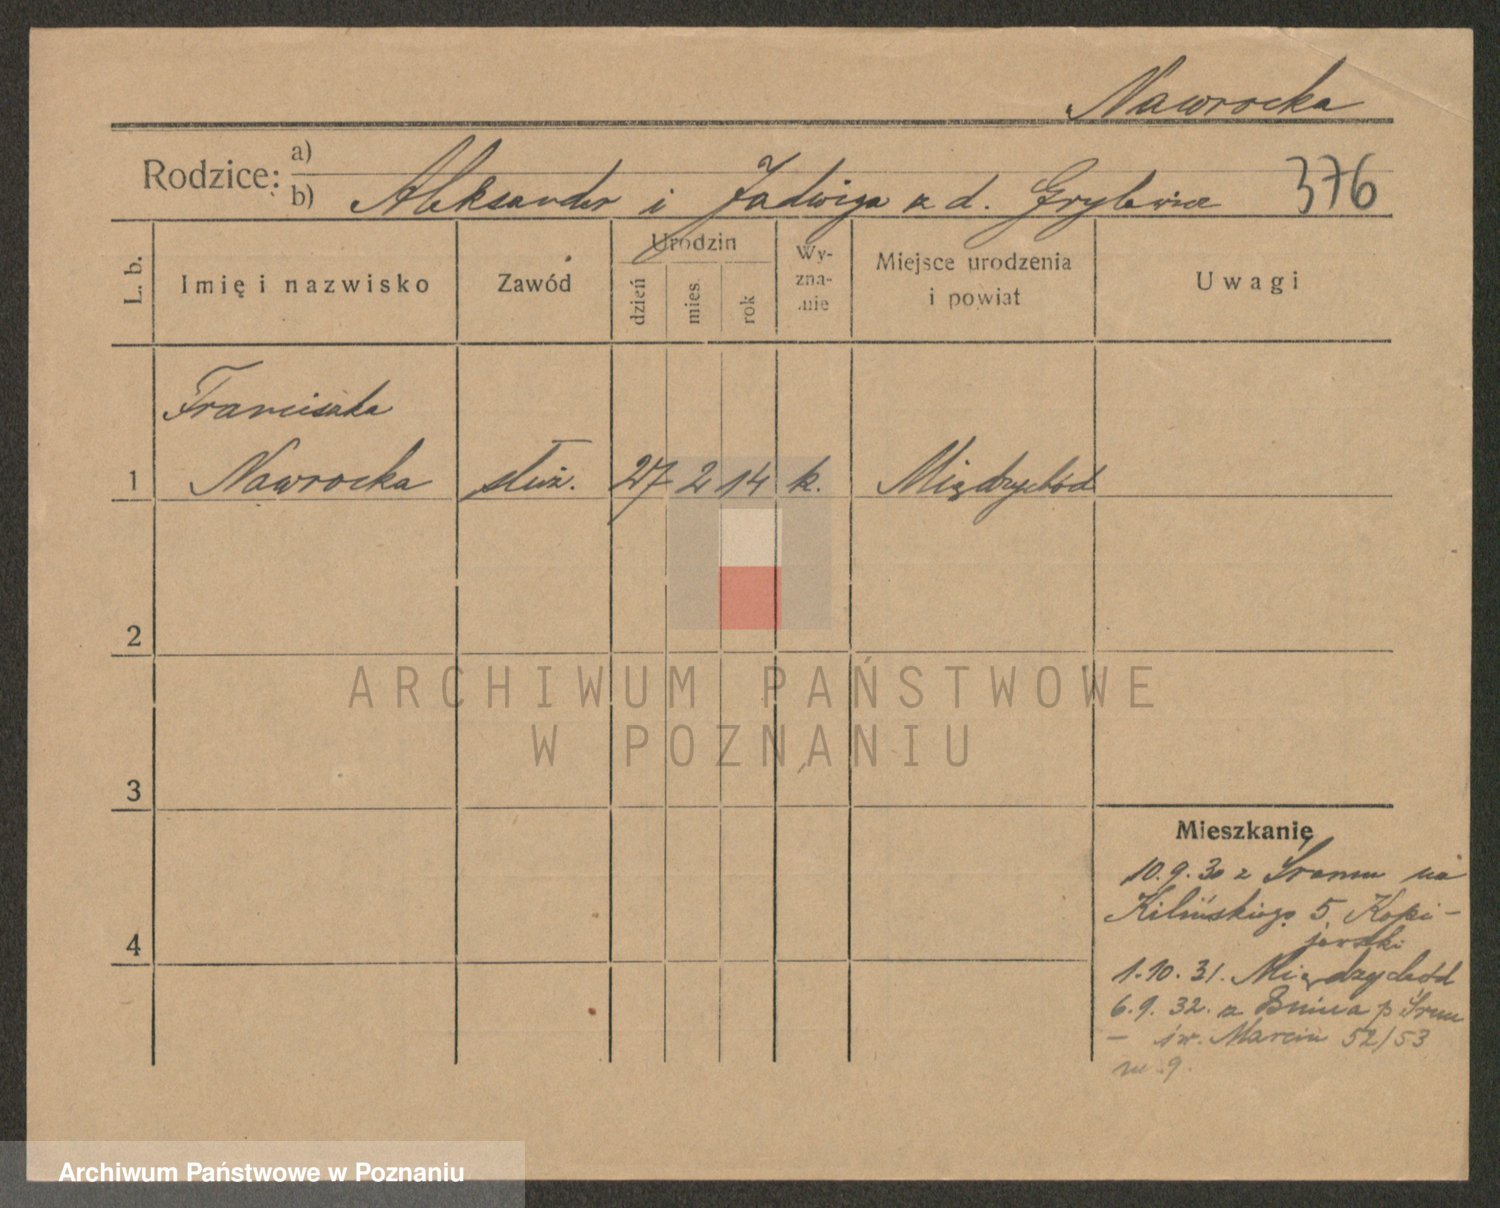 Nawrocka
Rodzice: a)
b) Aleksander i Jadwiga z d. 376
L. b. Imię i nazwisko Zawód Urodzin dzień mies. rok Wy-zna-nie Miejsce urodzenia i powiat Uwagi
Franciszka
1 Nawrocka służ. 27 2 14 k. Międzychód
2
ARCHIWUM PAŃSTWOWE
W POZNANIU
3
Mieszkanie
10.9.30 z Śremu na
Kilińskiego 5 Kopi-
jewski
4
1.10.31. Międzychód
6.9.32. z p. Śrem
— św. Marcin 52/53
m. 9.
Archiwum Państwowe w Poznaniu